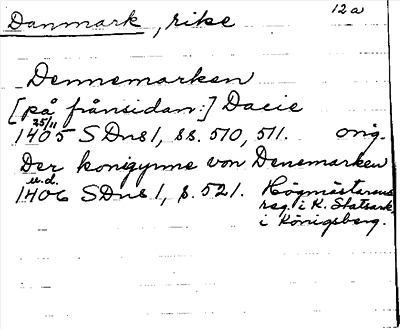 Danmark, rike
12a
Dennemarken
[på frånsidan:] Dacie
25/11
1405 SDns1, ss. 510, 511. orig.
Der konigynne von Denemarken
u.d.
1406 SDns1, s. 521. Högmästarens
reg. i K. Statsark.
i Königsberg.